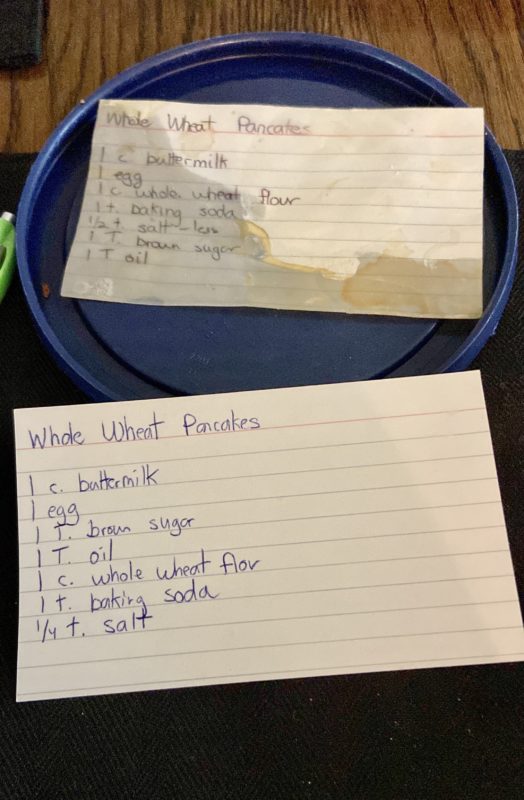 Whole Wheat Pancakes
1 c buttermilk
1 egg
1 c. whole wheat flour
1 t. baking soda
1/2 t. salt - less
1 T. brown sugar
1 T oil
Whole Wheat Pancakes
1 c. buttermilk
1 egg
1 T. brown sugar
1 T. oil
1 c. whole wheat flor
1 t. baking soda
1/4 t. salt